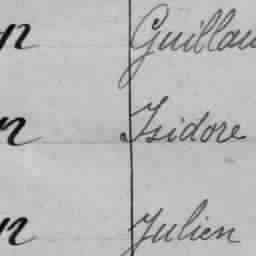 n Guillau
n Isidore
n Julien